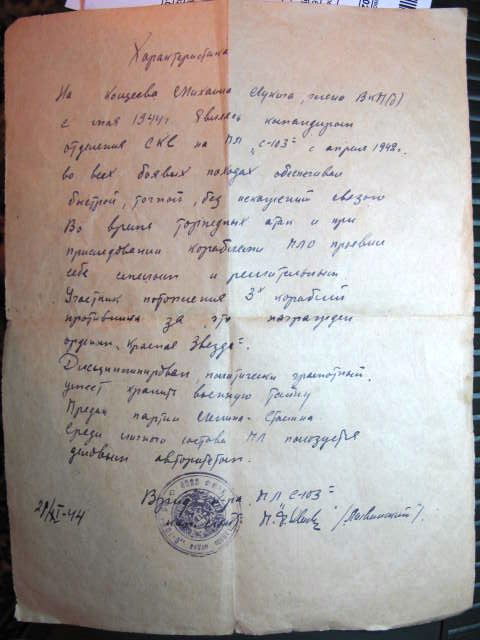 Характеристика
На Кощеева Михаила Лукича, члена ВКП(б)
с мая 1944г. Являясь командиром
отделения СКС на ПЛ „С-103" с апреля 1942г.
во всех боевых походах обеспечивал
быстрой, точной, без искажений связью
Во время торпедных атак и при
приследовании кораблями ПЛО проявил
себя смелым и решительным
Участник потопления 3х кораблей
противника за это награжден
орденом „Красная Звезда".
Дисциплинирован, политически грамотный.
умеет хранить военную тайну
Предан партии Ленина-Сталина
Среди личного состава ПЛ пользуется
деловым авторитетом.
ПЛ С-103"
29/XI-44